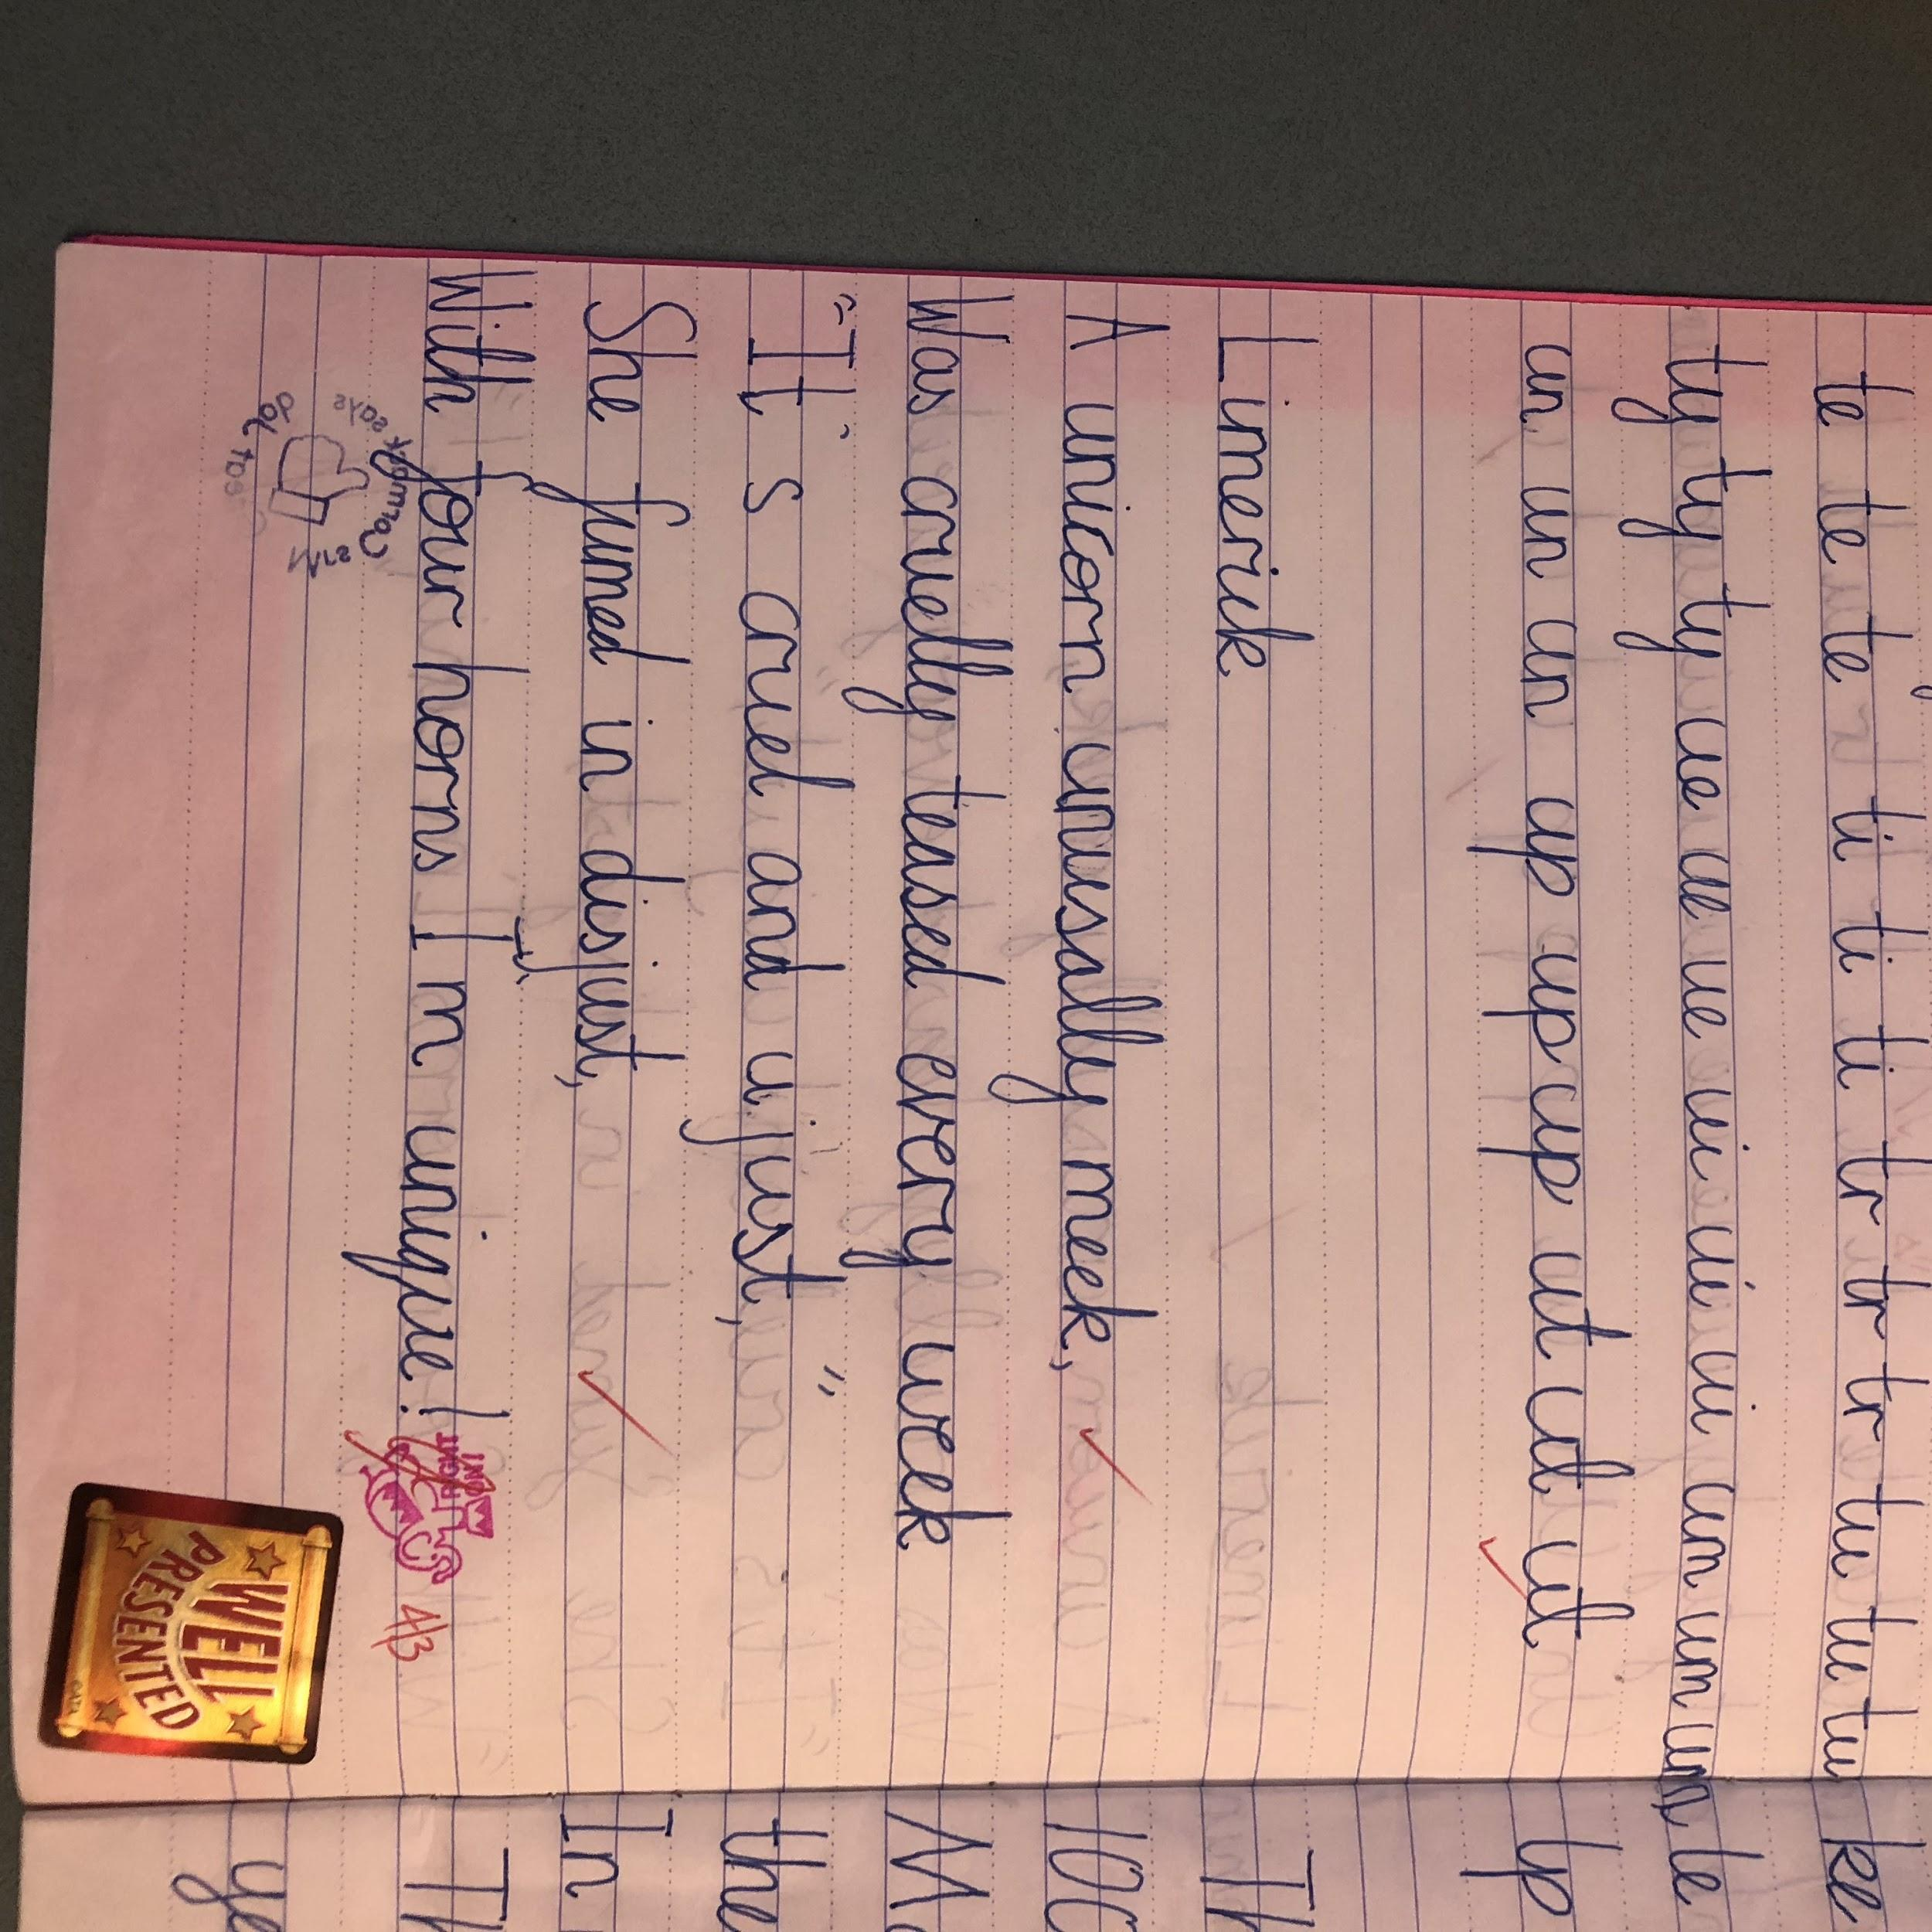 te te te ti ti ti tr tr tr tu tu tu
ty ty ty ue ue ue ui ui ui um um um
un un un up up up ut ut ut
Limerik
A unicorn unusally meek,
Was cruelly teased every week
"It's cruel and ujust,"
She fumed in disjust,
With four horns I'm unique!
RIGHT
ON!
4/3
Mrs Cormack says
WELL
PRESENTED
ke
te
yp
Th
100
Mo
the
In
Th
ye